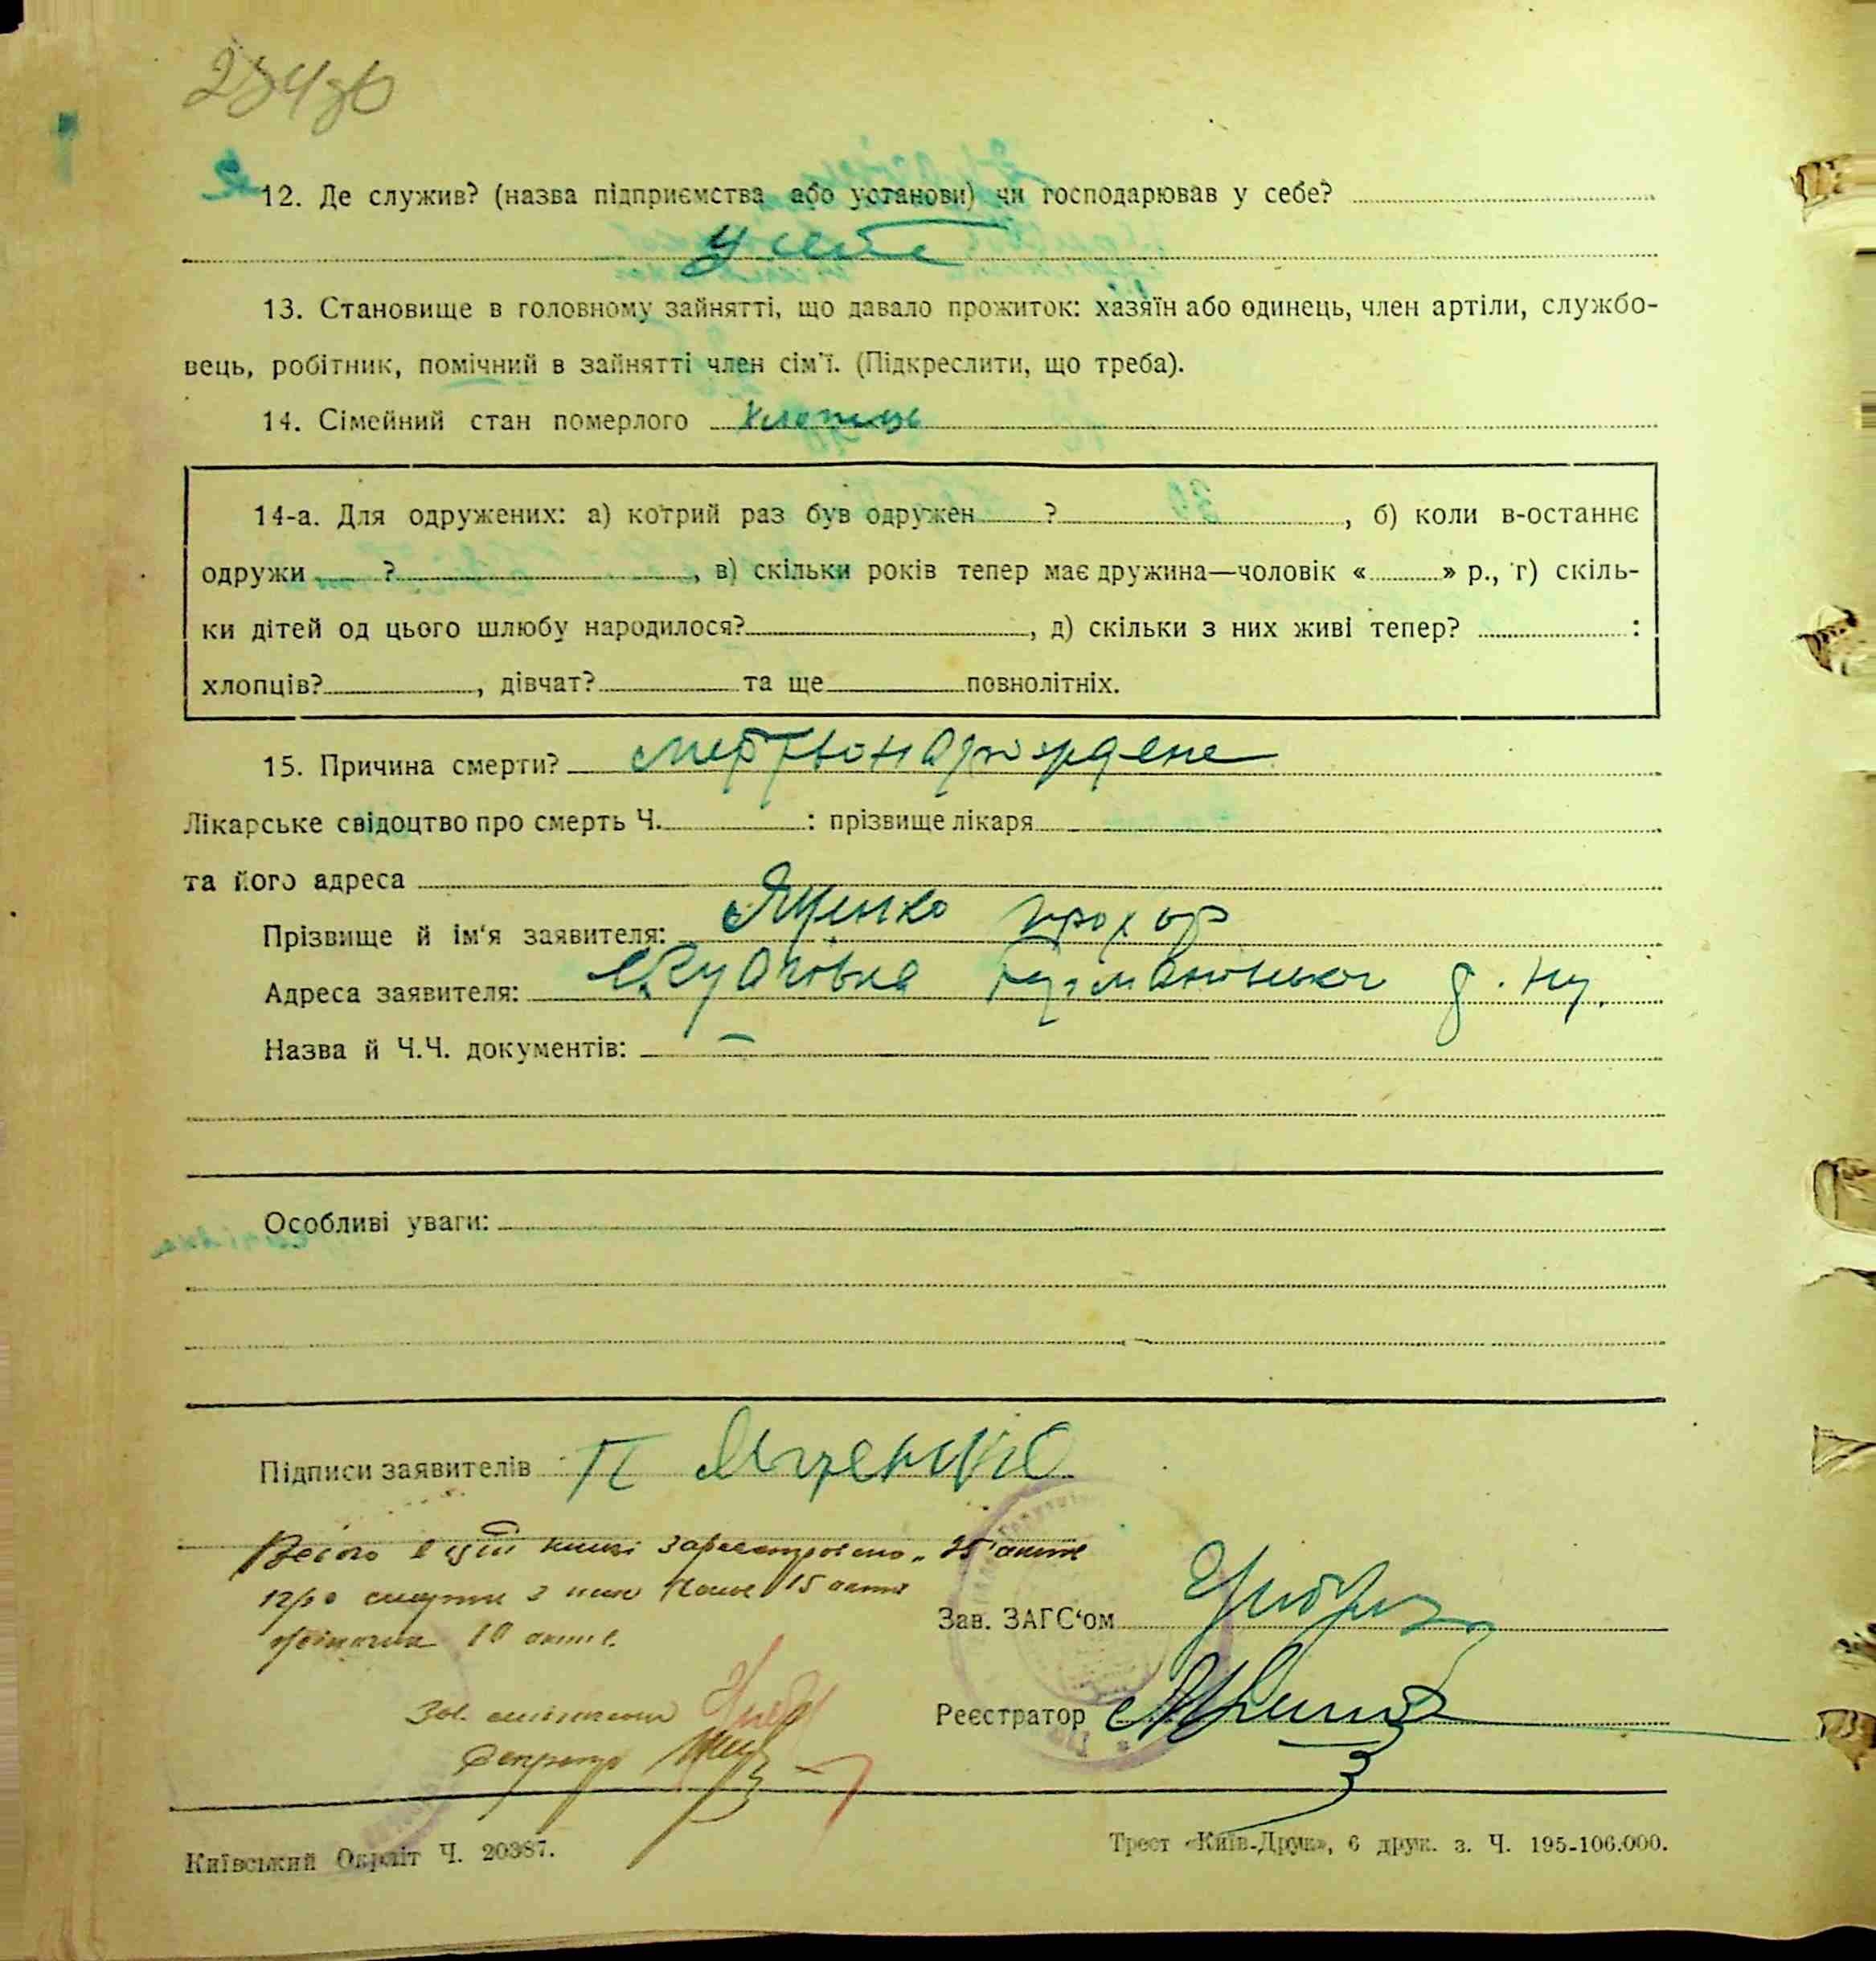 12. Де служив? (назва підприємства або установи) чи господарював у себе?
у себе
13. Становище в головному зайнятті, що давало прожиток: хазяїн або одинець, член артіли, службо-
вець, робітник, помічний в зайнятті член сім'ї. (Підкреслити, що треба).
14. Сімейний стан померлого хлопець
14-а. Для одружених: а) котрий раз був одружен ? , б) коли в-останнє
одружи ? , в) скільки років тепер має дружина—чоловік « » р., г) скіль-
ки дітей од цього шлюбу народилося? , д) скільки з них живі тепер? :
хлопців? , дівчат? та ще повнолітніх.
15. Причина смерти? мертвонарождене
Лікарське свідоцтво про смерть Ч. : прізвище лікаря
та його адреса
Прізвище й ім'я заявителя: Яценко Прохор
Адреса заявителя:
Назва й Ч.Ч. документів: —
Особливі уваги:
Підписи заявителів П Яценко
Всього в цій книзі зареєстровано 25 актів
про смерть з них 15 актів
10 актів.
Зав. ЗАГС'ом
Реєстратор
Секретар
Київський Окрліт Ч. 20387.
Трест «Київ-Друк», 6 друк. з. Ч. 195-106.000.